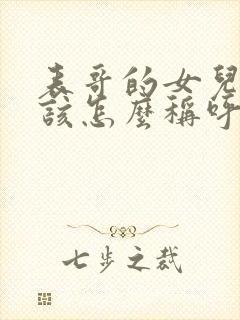 表哥的女兒
該怎麼稱呼
七步之裁